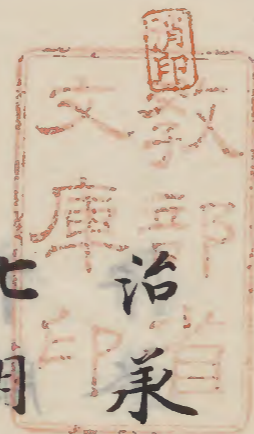 消印
教部省
文庫印
治承
七月